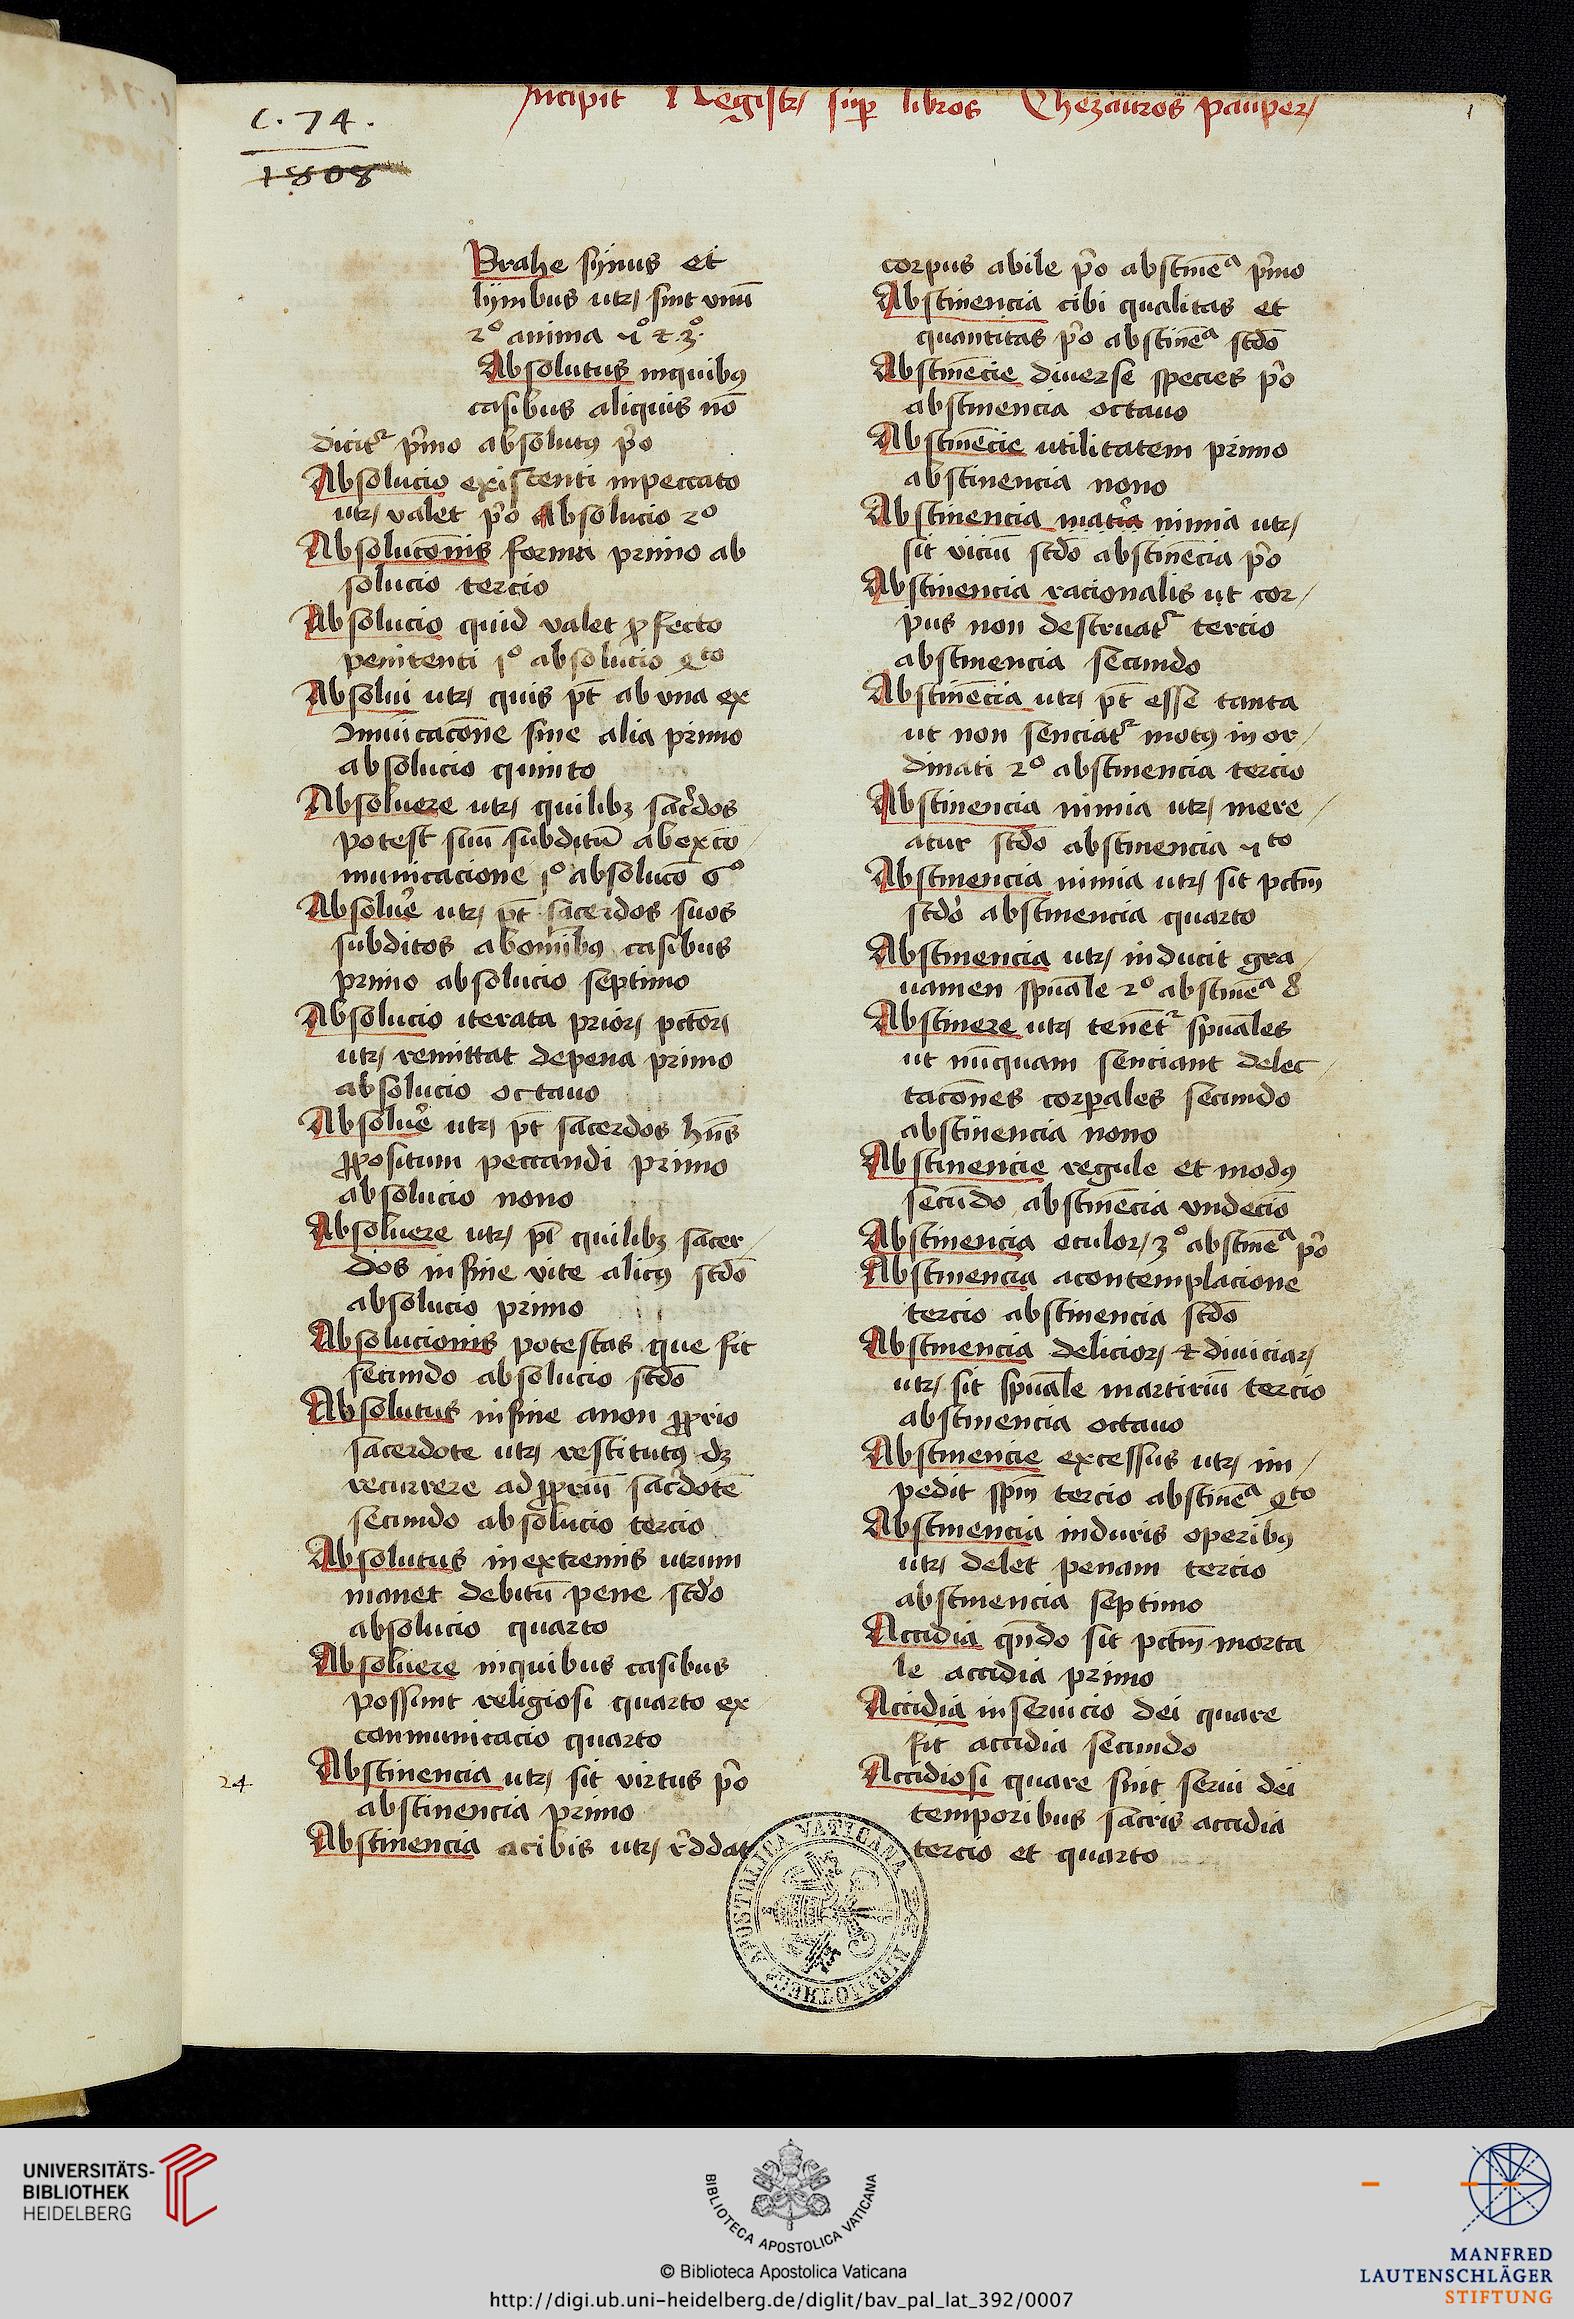 Incipit Registr sup libros Thezauros pauper
1
C. 74.
1808
Brahe synus et
lymbus utr sint vnū
2º anima 4º et 3º
Absolutus inquibus
casibus aliquis nō
dicitr pͥmo absolutus pͥo
Absolucio existenti inpeccato
utr valet pͥo Absolucio 2º
Absolucōnis forma primo ab
solucio tercio
Absolucio quid valet pfecto
penitenti 1º absolucio qto
Absolui utr quis pt ab vna ex
cōmūicacōne sine alia primo
absolucio quinto
Absoluere utr quilibꝫ sac̾dos
potest suū subditū abexcō
municacione 1º absolucō 6º
Absolue̾ utr pt sacerdos suos
subditos abomībꝫ casibus
primo absolucio septimo
Absolucio iterata prior pctor
utr remittat depena primo
absolucio octauo
Absolue̾ utr pt sacerdos hn̄s
ꝓpositum peccandi primo
absolucio nono
Absoluere utr pt quilibꝫ sacer
dos infine vite alicꝫ scdō
absolucio primo
Absolucionis potestas que sit
secundo absolucio scdō
Absolutus infine anon ꝓprio
sacerdote utr restitutꝫ dꝫ
recurrere adꝓpriū sac̾dotē
secundo absolucio tercio
Absolutus inextremis utrum
manet debitū pene scdo
absolucio quarto
Absoluere inquibus casibus
possunt religiosi quarto ex
conmunicacio quarto
24
Abstinencia utr sit virtus pͥo
abstinencia primo
Abstinencia acibis utr r̾ddat
corpus abile pͥo abstineᵃ pͥmo
Abstinencia cibi qualitas et
quantitas pͥo abstineᵃ scdō
Abstinēcie diuerse species pͥo
abstinencia octauo
Abstinēcie utilitatem primo
abstinencia nono
Abstinencia mat̾ia nimia utr
sit viciū scdō abstinēcia pͥo
Abstinencia racionalis ut cor
pus non destruatr tercio
abstinencia secundo
Abstinēcia utr pt esse tanta
ut non senciatr motꝫ in or
dinati 2º abstinencia tercio
Abstinencia nimia utr mere
atur scdō abstinencia 4to
Abstinencia nimia utr sit pctm̄
scdo abstinencia quarto
Abstinencia utr inducit gra
uamen spūale 2º abstineᵃ 8
Abstinere utr tenētr spūales
ut nūquam senciant delec
tacōnes corpales secundo
abstinencia nono
Abstinencie regule et modꝫ
secūdo abstinēcia vndeciō
Abstinencia oculor 3º abstineᵃ pͥo
Abstinencia acontemplacione
tercio abstinencia scdō
Abstinencia delicior et diuiciar
utr sit spūale martiriū tercio
abstinencia octauo
Abstinencie excessus utr im
pedit spm̄ tercio abstineᵃ qto
Abstinencia induris operibꝫ
utr delet penam tercio
abstinencia septimo
Accidia qn̄do sit pctm̄ morta
le accidia primo
Accidia inseruicio dei quare
fit accidia secundo
Accidiosi quare sint serui dei
temporibus sacris accidia
tercio et quarto
BIBLIOTHECA APOSTOLICA VATICANA
UNIVERSITÄTS-
BIBLIOTHEK
HEIDELBERG
BIBLIOTECA APOSTOLICA VATICANA
© Biblioteca Apostolica Vaticana
http://digi.ub.uni-heidelberg.de/diglit/bav_pal_lat_392/0007
MANFRED
LAUTENSCHLÄGER
STIFTUNG